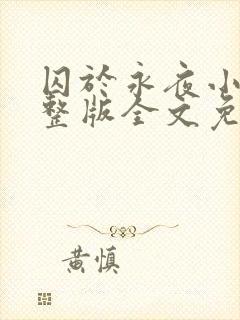 囚於永夜小
整版全文免
黄慎